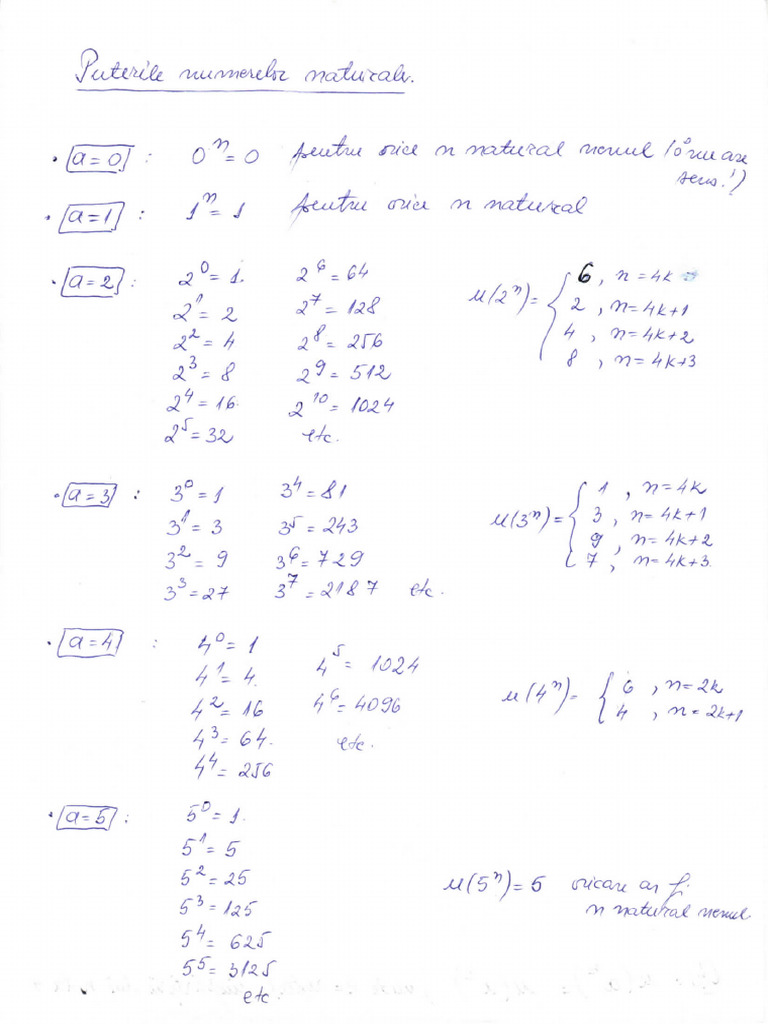 Puterile numerelor naturale.
• a=0 : 0^n = 0 pentru orice n natural nenul (0^0 nu are
sens!)
• a=1 : 1^n = 1 pentru orice n natural
• a=2 : 2^0 = 1. 2^6 = 64 u(2^n) = { 6, n=4k
2^1 = 2 2^7 = 128 2, n=4k+1
2^2 = 4 2^8 = 256 4, n=4k+2
2^3 = 8 2^9 = 512 8, n=4k+3
2^4 = 16. 2^10 = 1024
2^5 = 32 etc.
• a=3 : 3^0 = 1 3^4 = 81 u(3^n) = { 1, n=4k
3^1 = 3 3^5 = 243 3, n=4k+1
3^2 = 9 3^6 = 729 9, n=4k+2
3^3 = 27 3^7 = 2187 etc. 7, n=4k+3.
• a=4 : 4^0 = 1
4^1 = 4. 4^5 = 1024 u(4^n) = { 6, n=2k
4^2 = 16 4^6 = 4096 4, n=2k+1
4^3 = 64. etc.
4^4 = 256
• a=5 : 5^0 = 1.
5^1 = 5
5^2 = 25 u(5^n) = 5 oricare ar fi
5^3 = 125 n natural nenul
5^4 = 625
5^5 = 3125
etc.